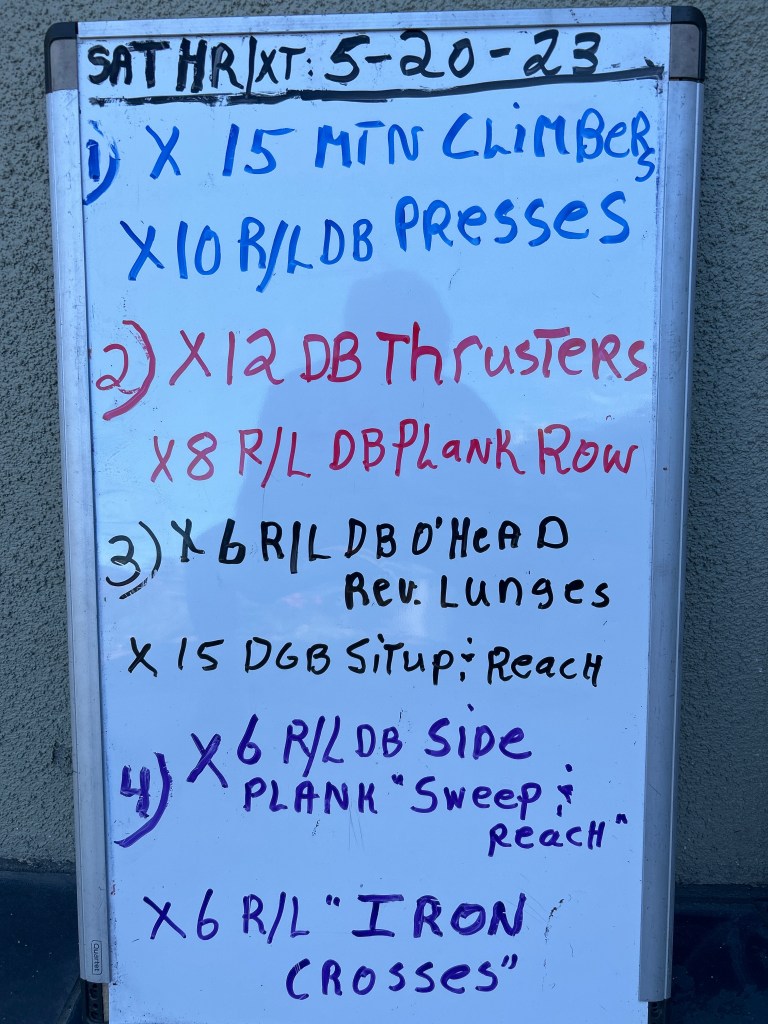 SAT HR/XT: 5-20-23
1) X 15 MTN CLiMBeRs
X10 R/L DB PResses
2) X12 DB ThrusTeRs
X8 R/L DB PLanK Row
3) X 6 R/L DB O'HeAD
Rev. Lunges
X 15 DGB SiTup & ReacH
4) X 6 R/L DB SiDe
PLANK "Sweep &
ReacH"
X6 R/L "IRON
CRosses"
Quartet